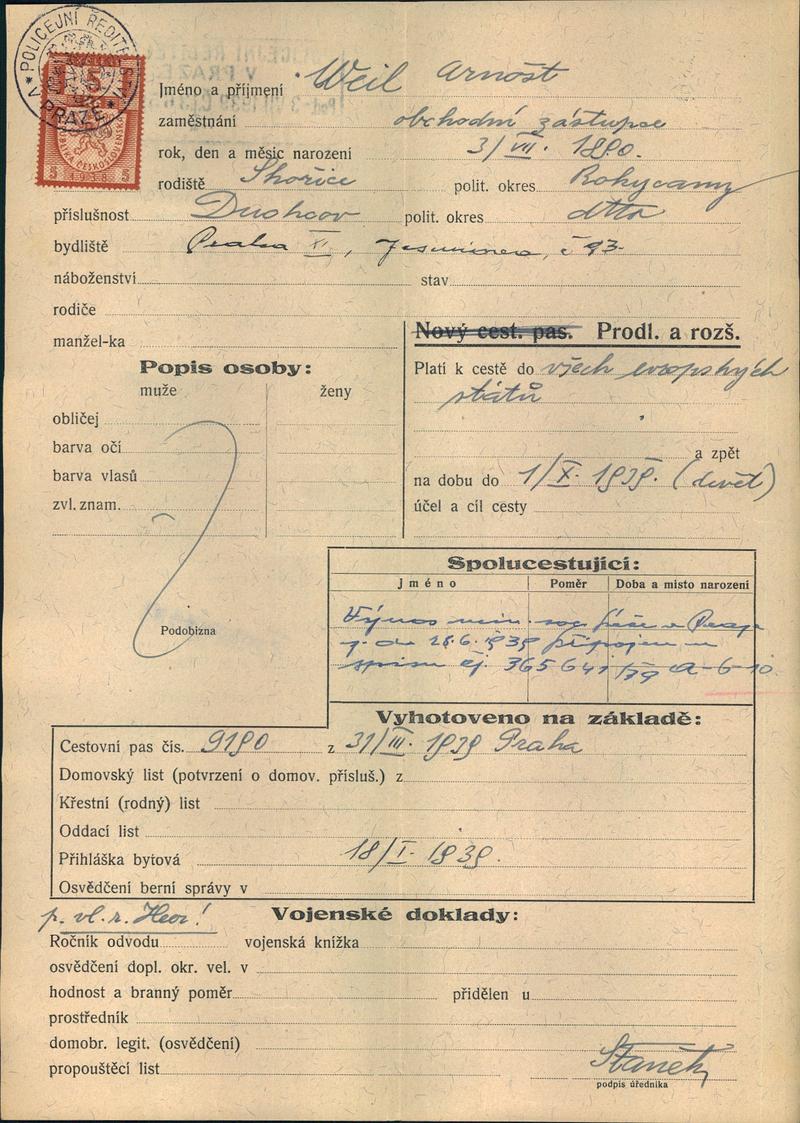 POLICEJNÍ ŘEDITEL
V PRAZE
5
ČESKOSLOVENSKÁ
5 1938 5
Jméno a příjmení Weil Arnošt
zaměstnání obchodní zástupce
rok, den a měsíc narození 3/VII. 1890.
rodiště Skořice polit. okres Rokycany
příslušnost Duchcov polit. okres dtto
bydliště Praha XI, č 93.
náboženství stav
rodiče
manžel-ka
Nový cest. pas. Prodl. a rozš.
Popis osoby:
muže ženy
obličej
barva očí
barva vlasů
zvl. znam.
Podobizna
Platí k cestě do všech evropských
států
a zpět
na dobu do 1/X. 1939. (devět)
účel a cíl cesty
Spolucestující:
jméno Poměr Doba a místo narození
Výnos min. soc. péče v Praze
z. de 28.6. 1939 připojen u
spisu čj. 365641/39 A-6-10
Vyhotoveno na základě:
Cestovní pas čís. 9190 z 31/III. 1939 Praha
Domovský list (potvrzení o domov. přísluš.) z
Křestní (rodný) list
Oddací list
Přihláška bytová 18/I. 1939.
Osvědčení berní správy v
p. vl. r.
Vojenské doklady:
Ročník odvodu vojenská knížka
osvědčení dopl. okr. vel. v
hodnost a branný poměr přidělen u
prostředník
domobr. legit. (osvědčení)
propouštěcí list
Staněk
podpis úředníka